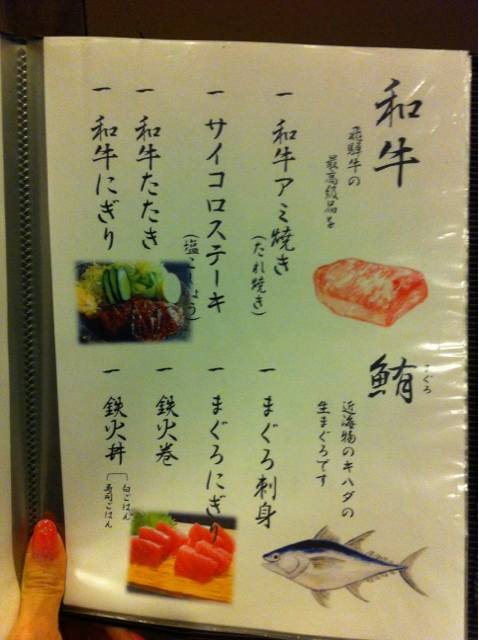 和牛
飛騨牛の
最高級品を
一 和牛アミ焼き
(たれ焼き)
一 サイコロステーキ
(塩こしょう)
一 和牛たたき
一 和牛にぎり
鮪
まぐろ
近海物のキハダの
生まぐろです
一 まぐろ刺身
一 まぐろにぎり
一 鉄火巻
一 鉄火丼
白ごはん
寿司ごはん